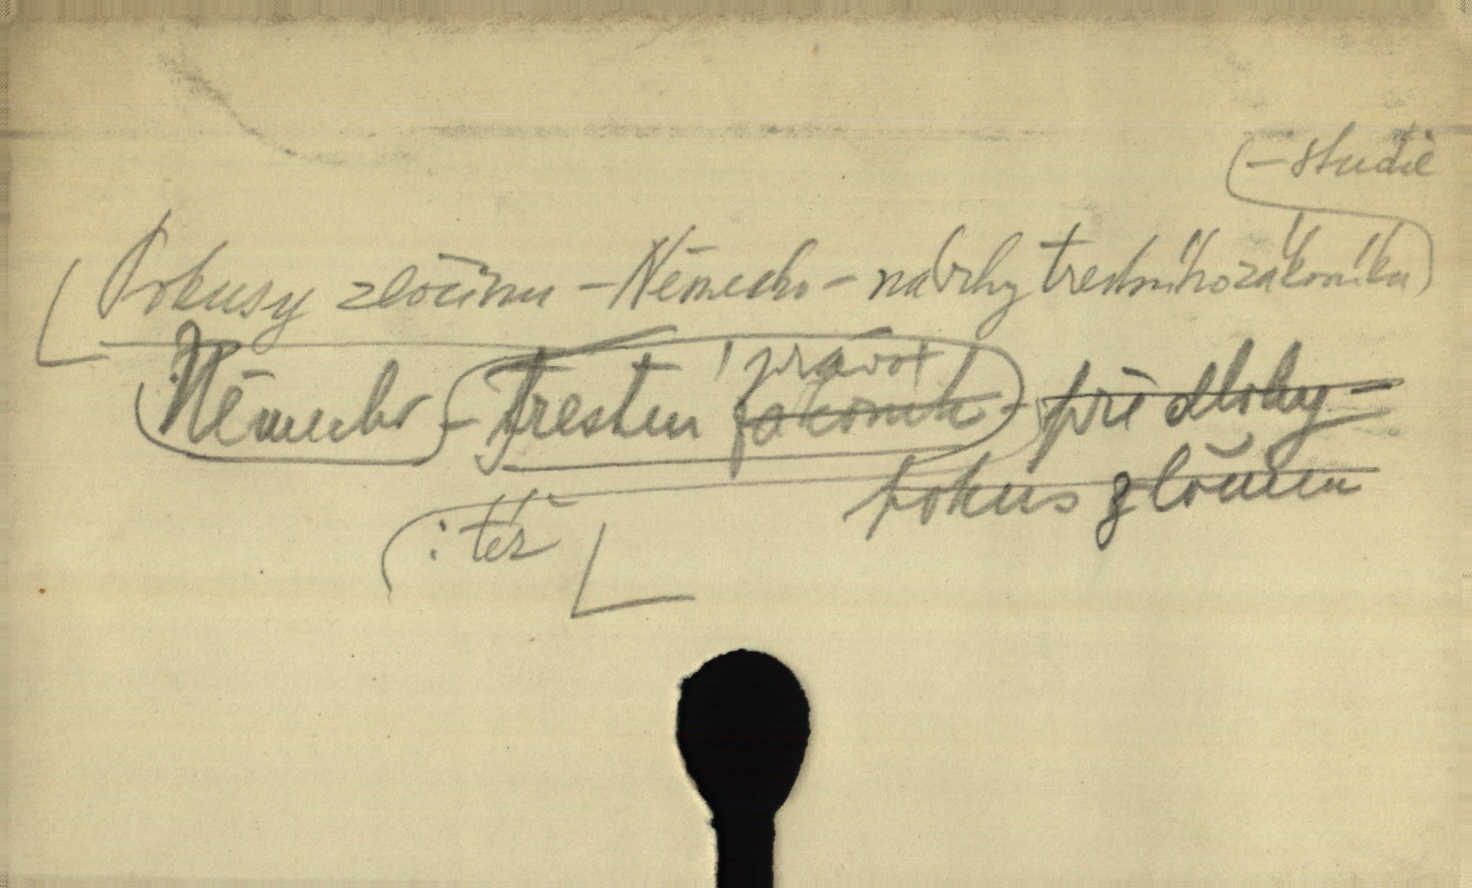 – studie
Pokusy zločinu – Německo – návrhy trestního zákoníku
právo
Německo – trestní zákoník – předlohy –
pokus zločinu
: též